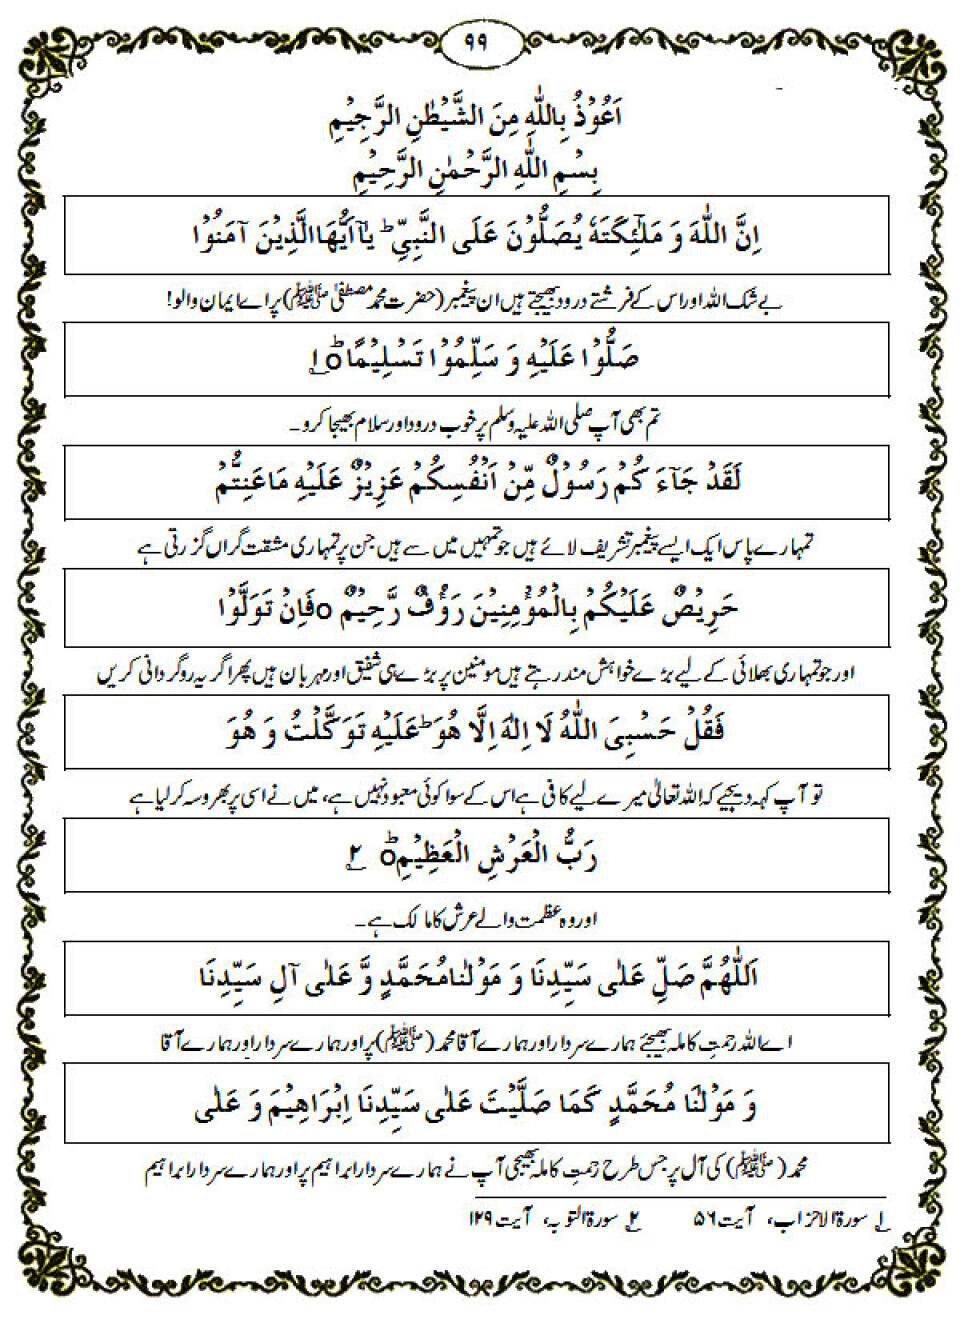 ۹۹
اَعُوْذُ بِاللّٰهِ مِنَ الشَّيْطٰنِ الرَّجِيْمِ
بِسْمِ اللّٰهِ الرَّحْمٰنِ الرَّحِيْمِ
اِنَّ اللّٰهَ وَ مَلٰٓئِكَتَهٗ يُصَلُّوْنَ عَلَى النَّبِيِّ ؕ يٰٓاَيُّهَا الَّذِيْنَ آمَنُوْا
بے شک اللہ اور اس کے فرشتے درود بھیجتے ہیں ان پیغمبر (حضرت محمد مصطفیٰ ﷺ) پر اے ایمان والو!
صَلُّوْا عَلَيْهِ وَ سَلِّمُوْا تَسْلِيْمًا ؕ○ ۱؂
تم بھی آپ صلی اللہ علیہ وسلم پر خوب درود اور سلام بھیجا کرو۔
لَقَدْ جَآءَ كُمْ رَسُوْلٌ مِّنْ اَنْفُسِكُمْ عَزِيْزٌ عَلَيْهِ مَاعَنِتُّمْ
تمہارے پاس ایک ایسے پیغمبر تشریف لائے ہیں جو تمہیں میں سے ہیں جن پر تمہاری مشقت گراں گزرتی ہے
حَرِيْصٌ عَلَيْكُمْ بِالْمُؤْمِنِيْنَ رَؤُفٌ رَّحِيْمٌ ○ فَاِنْ تَوَلَّوْا
اور جو تمہاری بھلائی کے لیے بڑے خواہش مند رہتے ہیں مومنین پر بڑے ہی شفیق اور مہربان ہیں پھر اگر یہ روگردانی کریں
فَقُلْ حَسْبِيَ اللّٰهُ لَا اِلٰهَ اِلَّا هُوَ ؕ عَلَيْهِ تَوَكَّلْتُ وَ هُوَ
تو آپ کہہ دیجیے کہ اللہ تعالیٰ میرے لیے کافی ہے اس کے سوا کوئی معبود نہیں ہے، میں نے اسی پر بھروسہ کرلیا ہے
رَبُّ الْعَرْشِ الْعَظِيْمِ ؕ○ ۲؂
اور وہ عظمت والے عرش کا مالک ہے۔
اَللّٰهُمَّ صَلِّ عَلٰى سَيِّدِنَا وَ مَوْلٰنَا مُحَمَّدٍ وَّ عَلٰى آلِ سَيِّدِنَا
اے اللہ رحمتِ کاملہ بھیجئے ہمارے سردار اور ہمارے آقا محمد (ﷺ) پر اور ہمارے سردار اور ہمارے آقا
وَ مَوْلٰنَا مُحَمَّدٍ كَمَا صَلَّيْتَ عَلٰى سَيِّدِنَا اِبْرَاهِيْمَ وَ عَلٰى
محمد (ﷺ) کی آل پر جس طرح رحمتِ کاملہ بھیجی آپ نے ہمارے سردار ابراہیم پر اور ہمارے سردار ابراہیم
۱؂ سورۃ الاحزاب، آیت ۵۶ ۲؂ سورۃ التوبہ، آیت ۱۲۹